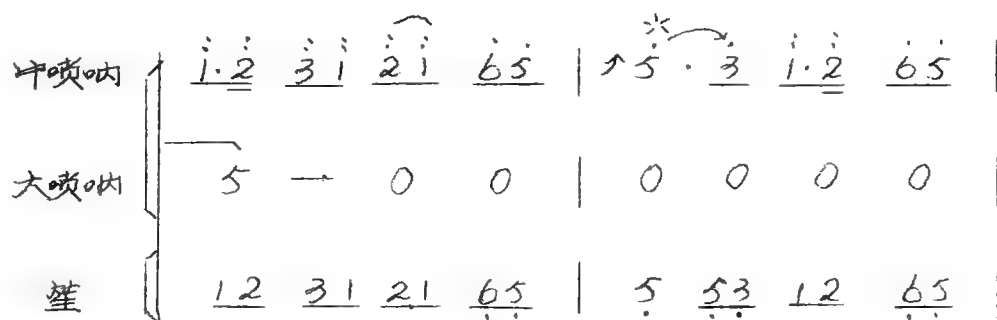 中唢呐 1·2 31 21 65 | 5·3 1·2 65 |
大唢呐 5 — 0 0 | 0 0 0 0 |
笙 12 31 21 65 | 5 53 12 65 |